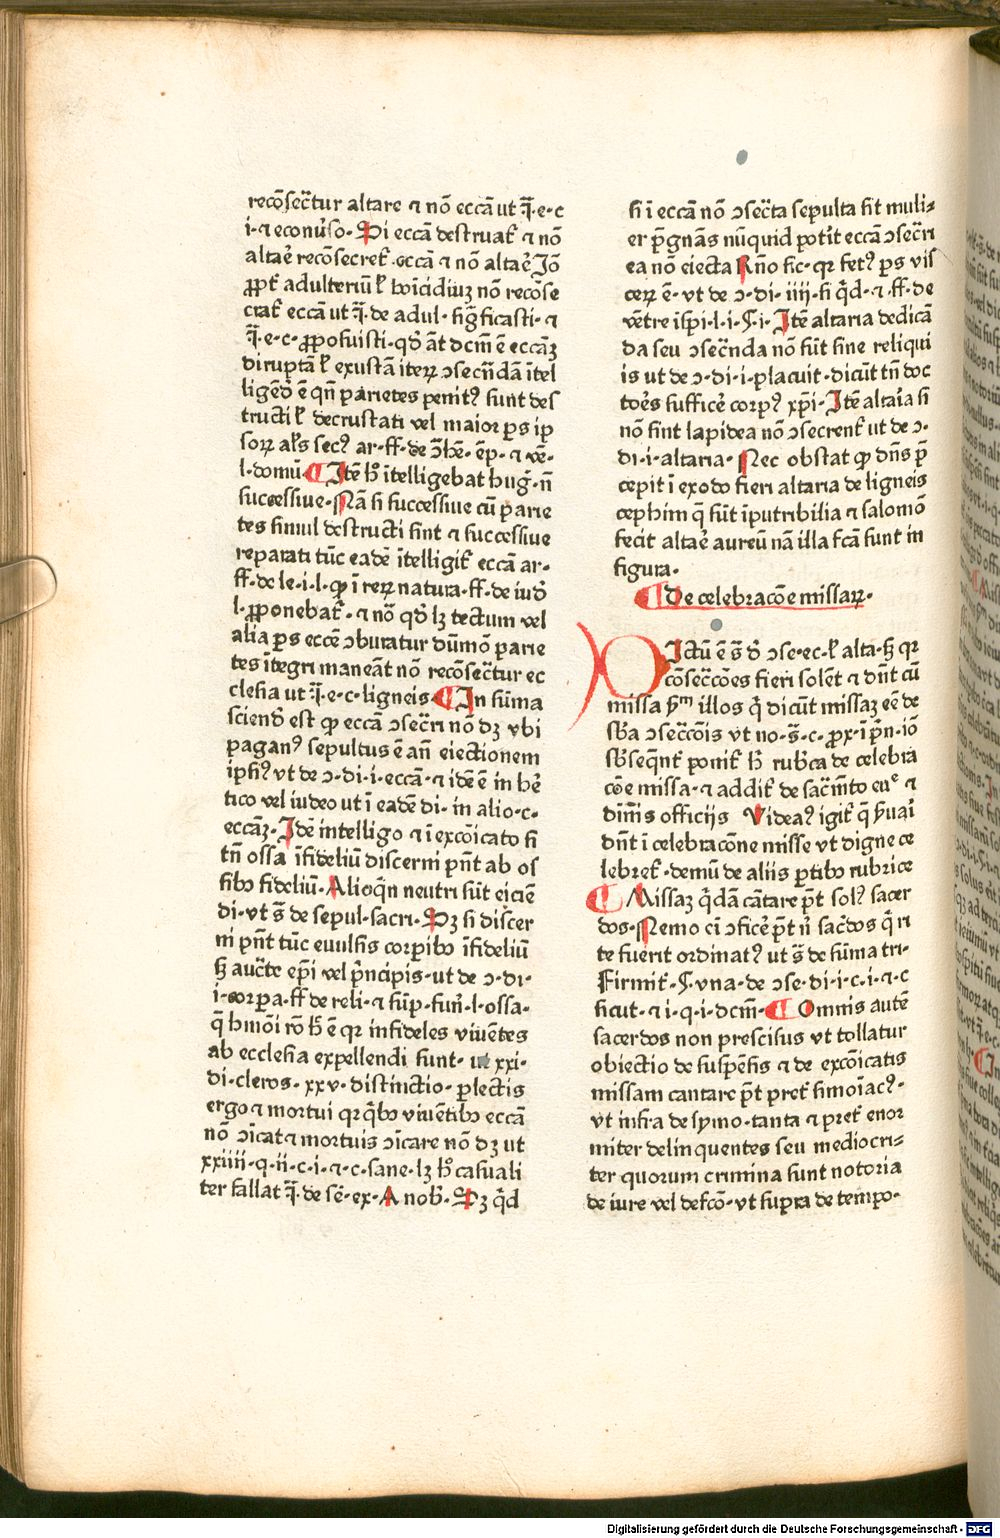 recōsecr̄tur altare ⁊ nō eccā ut q̄·e·c
i·⁊ econuſo· Si eccā destruat̄ ⁊ nō
altaē recōsecret̄·eccā ⁊ nō altaē Jō
ꝓpt̄ adulteriū ł homicidiuȝ nō recōse
crat̄ eccā ut q̄·de adul·ſigficasti·⁊
q̄·e·c·ꝓposuisti·qđ āt dcm̄ ē eccāȝ
diruptā ł exustā iteꝝ ↄsecrn̄dā itel
ligēđ ē qn̄ parietes penitꝰ sunt des
tructi ł decrustati vel maior ꝑs ip
soꝝ al's secꝰ
l·domū· ¶ Itē h̄ ītelligebat hug·n̄
successiue·Nā si successiue cū parie
tes simul destructi sint ⁊ successiue
reparati tūc eadē ītelligit̄ eccā ar·
ff·de le·i·l·ꝙ ī reꝝ natura·ff·de iuđ
l·ꝓponebat̄·⁊ nō qđ lȝ tectum vel
alia ꝑs eccē ↄburatur dūmō parie
tes ītegri maneāt nō recōsecr̄tur ec
clesia ut q̄·e·c·ligneis· ¶ In sūma
sciendū est ꝙ eccā ↄsecr̄ri nō dȝ vbi
paganꝰ sepultus ē añ eiectionem
ipsiꝰ vt de ↄ·di·i·eccā·⁊ idē ē in hē
tico vel iudeo ut ī eadē di·in alio·c·
eccāȝ·Idē intelligo ⁊ ī excōicato si
tn̄ ossa īfideliū discerni pn̄t ab os
sibꝰ fideliū·Alioqn̄ neutri sūt eiciē
di·vt s̄ de sepul·sacri·Sȝ si discer
ni pn̄t tūc euulsis corpibꝰ īfideliū
ꝫ aucte ep̄i vel pncipis·ut de ↄ·di·
i·corpora·ff de reli·⁊ sūp·fun̄·l·ossa·
q̄ hmōi rō h̄ ē qꝛ infideles viuentes
ab ecclesia expellendi sunt· ut xxi·
di·cleros·xxv·distinctio·plectis
ergo ⁊ mortui qꝛ qbꝰ viuētibꝰ eccā
nō ↄicat ⁊ mortuis ↄicare nō dȝ ut
xxiiii·q·ii·c·i·⁊·c·sane·lȝ h̄ casuali
ter fallat q̄·de sē·ex·A nob̄·Sȝ qđ
si ī eccā nō ↄsecr̄ta sepulta sit muli⸗
er p̄gnās nūquid potit eccā ↄsecr̄ri
ea nō eiecta Rn̄o sic·qꝛ fetꝰ ꝑs vis
ceꝝ ē·vt de ↄ·di·iiii·si qđ·⁊·ff·de
vētre ispi·l·i·§·i·Itē altaria dedicā
da seu ↄsecrn̄da nō sūt sine reliqui
is ut de ↄ·di·i·placuit·dicūt tn̄ doc
toēs sufficē corpꝰ xp̄i·Itē altaria si
nō sint lapidea nō ↄsecrent̄ ut de ↄ·
di·i·altaria·Nec obstat ꝙ dn̄s p̄
cepit ī exodo fieri altaria de ligneis
cephim q̄ sūt īputribilia ⁊ salomō
fecit altaē aureū nā illa fcā sunt in
figura·
¶ De celebracōe missaꝝ·
DIctū ē s̄ đ ↄse·ec·ł alta·ꝫ qꝛ
cōsecr̄cōes fieri solēt ⁊ dn̄t cū
missa ꝑm illos q̄ dicūt missaȝ eē de
sb̄a ↄsecr̄cōis vt no·s̄·c·ꝓx·ī pn̄·iō
sb̄seqnt̄ ponit̄ h̄ rub'ca de celebra
cōe missa·⁊ addit̄ de sacm̄to eu ⁊
diuīs officijs Videaꝰ igit̄ q̄ ẜuari
dn̄t ī celebracōne misse vt digne ce
lebret̄·demū de aliis ꝑtibꝰ rubrice
¶ Missaȝ qdā cātare pt̄ solꝰ sacer
dos·Nemo ei ↄficē pt̄ n̄ sacdos q̄ ri
te fuerit ordinatꝰ ut s̄ de sūma tri·
Firmit̄·§·vna·de ↄse·di·i·c·i·⁊·c
sicut·⁊ i·q·i·dcm̄· ¶ Omnis autē
sacerdos non prescisus vt tollatur
obiectio de suspēsis ⁊ de excōicatis
missam cantare pt̄ pret̄ simoīacꝰ·
vt infra de symo·tanta ⁊ pret̄ enor
miter delinquentes seu mediocri⸗
ter quorum crimina sunt notoria
de iure vel defcō·vt supra de tempo·
Digitalisierung gefördert durch die Deutsche Forschungsgemeinschaft - DFG